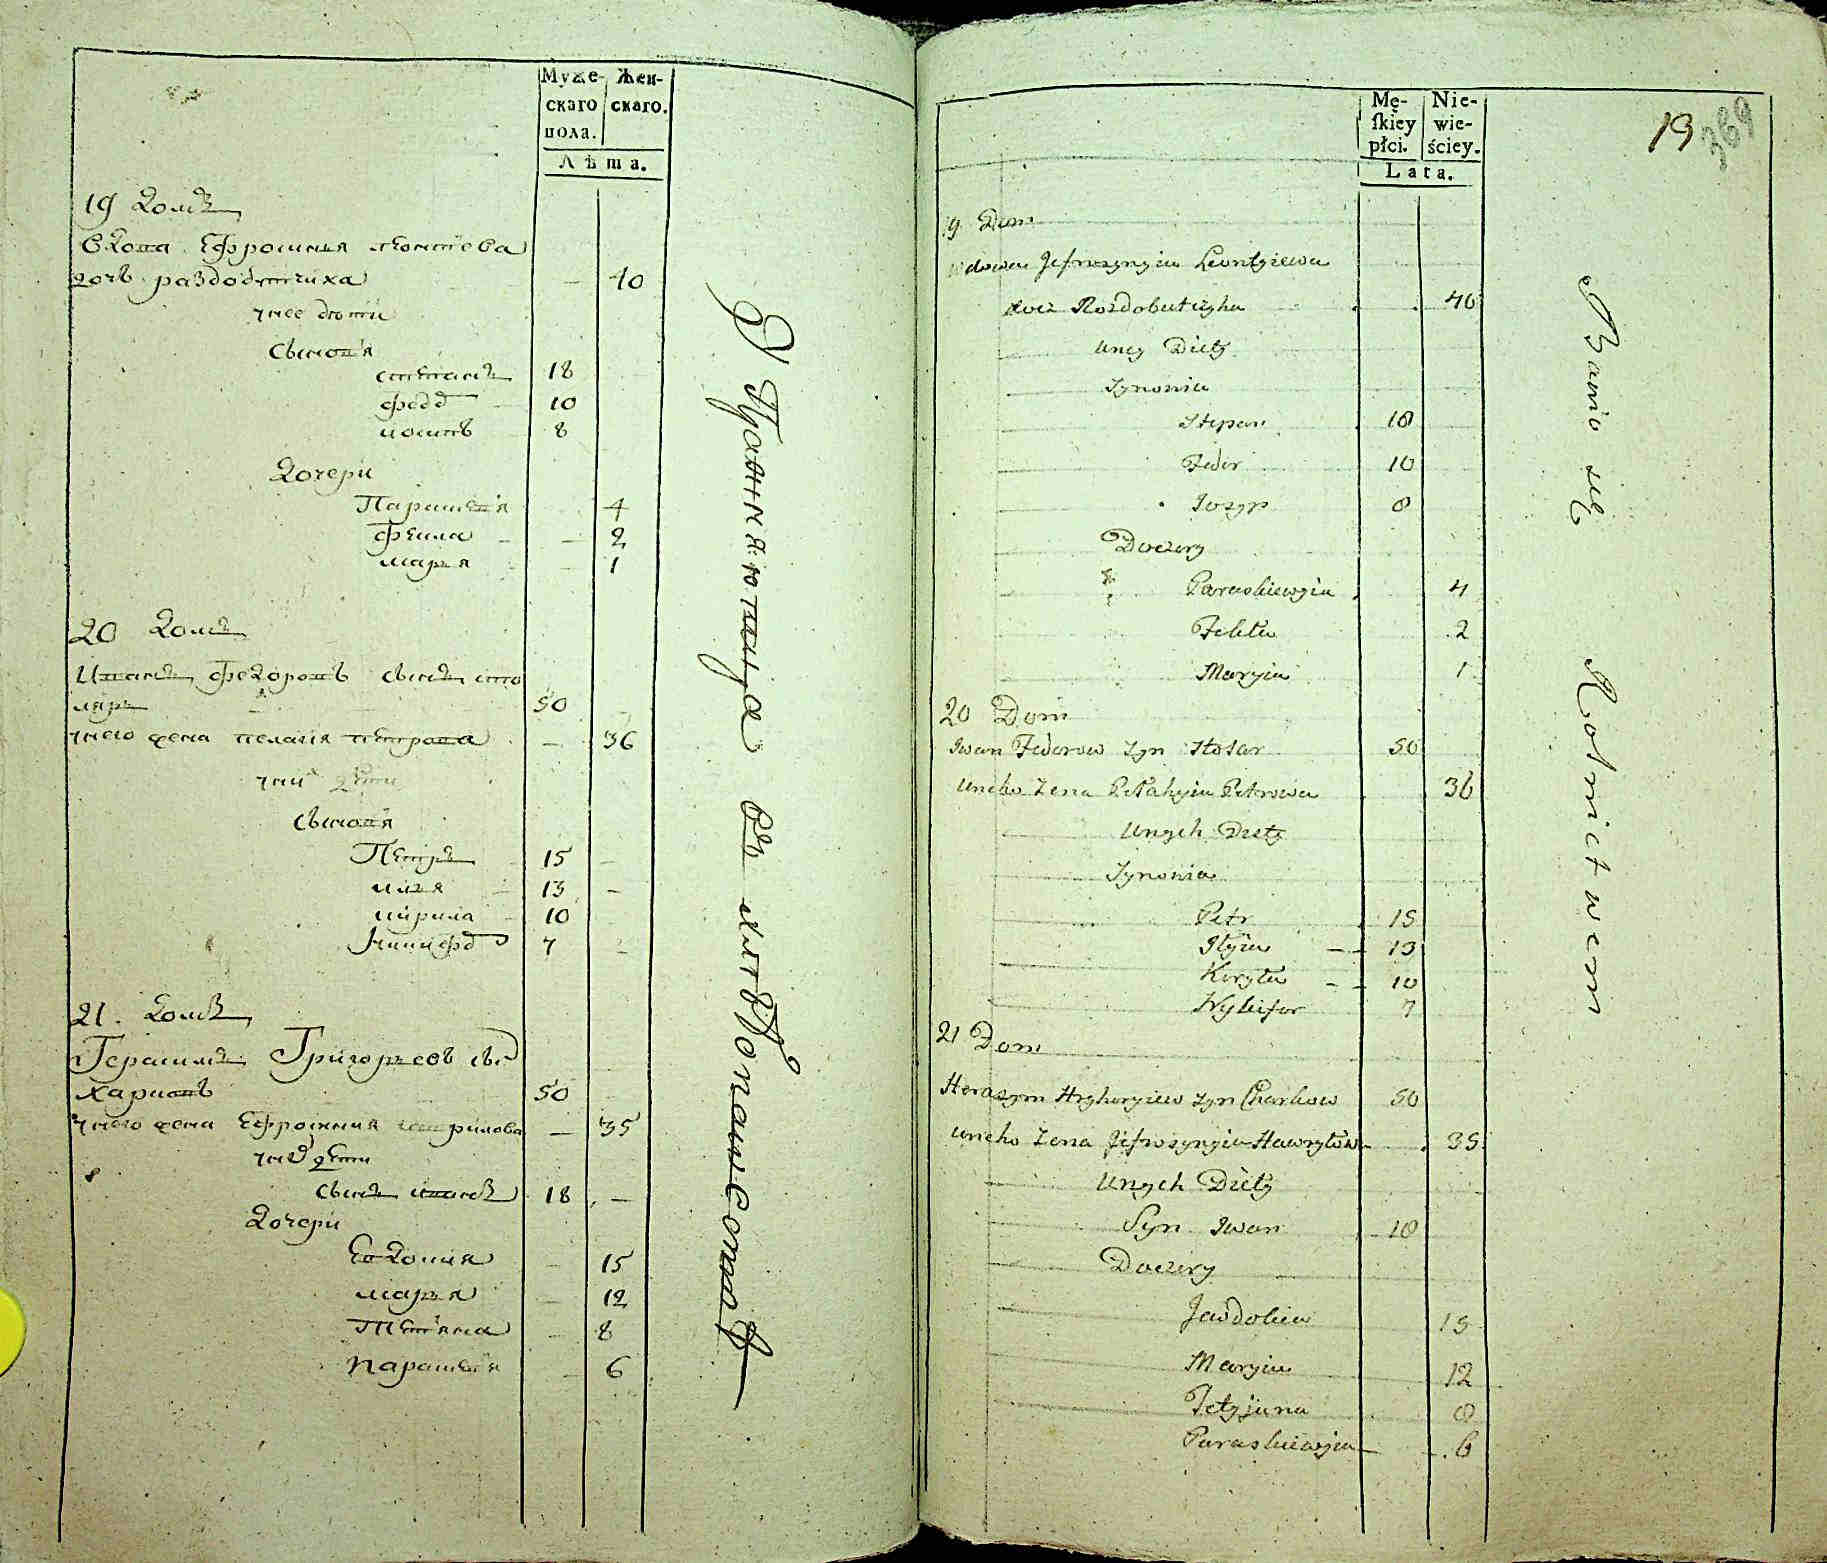 Муже-
скаго
пола.
Жен-
скаго.
Лѣта.
19 Домъ
вдова Ефросинья леонтьева
дочь раздобутчиха 40
унее дѣти
сыновя
степанъ 18
федоръ 10
иосипъ 8
Дочери
Параскевія 4
фекла 2
марья 1
20 Домъ
Иванъ федоровъ сынъ сто
ляръ 50
унего жена пелагія петрова 36
унихъ дѣти
сыновя
Петръ 15
илья 13
кирила 10
никифоръ 7
21. Домъ
Герасимъ Григорьевъ сынъ
харковъ 50
унего жена Ефросиния гаврилова 35
унихъ дѣти
сынъ иванъ 18
Дочери
Евдокия 15
марья 12
Тетяна 8
параскевія 6
Упражняютца въ хлѣбопашествѣ
Mę-
skiey
płci.
Nie-
wie-
ściey.
Lata.
19
369
19 Dom
wdowa Jefroszynyia Leontyiewa
docz Rozdobutczyha 40
Uney Diety
Synowia
Stepan 18
Fedor 10
Joszyp 8
Doczery
Paraskiewyia 4
Fekła 2
Maryia 1
20 Dom
Iwan Fedorow syn Stolar 50
Uneho Zena Pełahyia Petrowa 36
Unych Diety
Synowia
Petr 15
Ilyia 13
Kiryła 10
Nykifor 7
21 Dom
Herasym Hryhoryiew syn Charkow 50
Uneho Zena Jefroszynyia Hawryłowa 35
Unych Diety
Syn Iwan 18
Doczery
Jewdokia 15
Maryia 12
Tetyjana 8
Paraskiewyia 6
Bawio się Rolnictwem